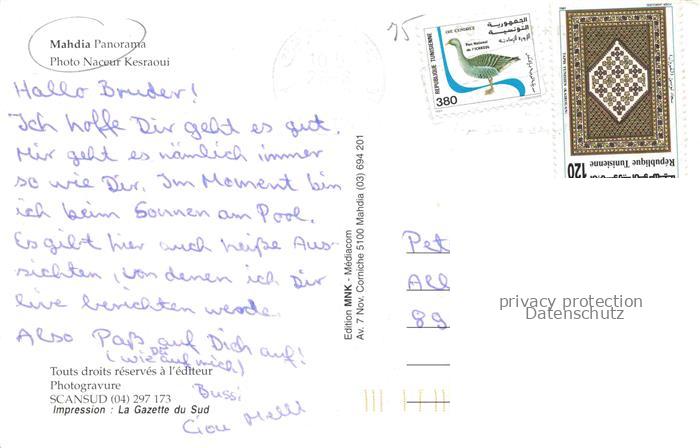 Mahdia Panorama
Photo Naceur Kesraoui
Hallo Bruder!
Ich hoffe Dir geht es gut.
Mir geht es nämlich immer
so wie Dir. Im Moment bin
ich beim Sonnen am Pool.
Es gibt hier auch heiße Aus-
sichten, von denen ich Dir
live berichten werde.
Also Paß auf Dich auf!
(wie Du auf mich)
Bussi
Ciou
Touts droits réservés à l'éditeur
Photogravure
SCANSUD (04) 297 173
Impression : La Gazette du Sud
Edition MNK - Médiacom
Av. 7 Nov. Corniche 5100 Mahdia (03) 694 201
75
OIE CENDREE
الجمهورية
التونسية
Parc National
de l'ICHKEUL
REPUBLIQUE TUNISIENNE
380
République Tunisienne
120
Pet
All
89
privacy protection
Datenschutz